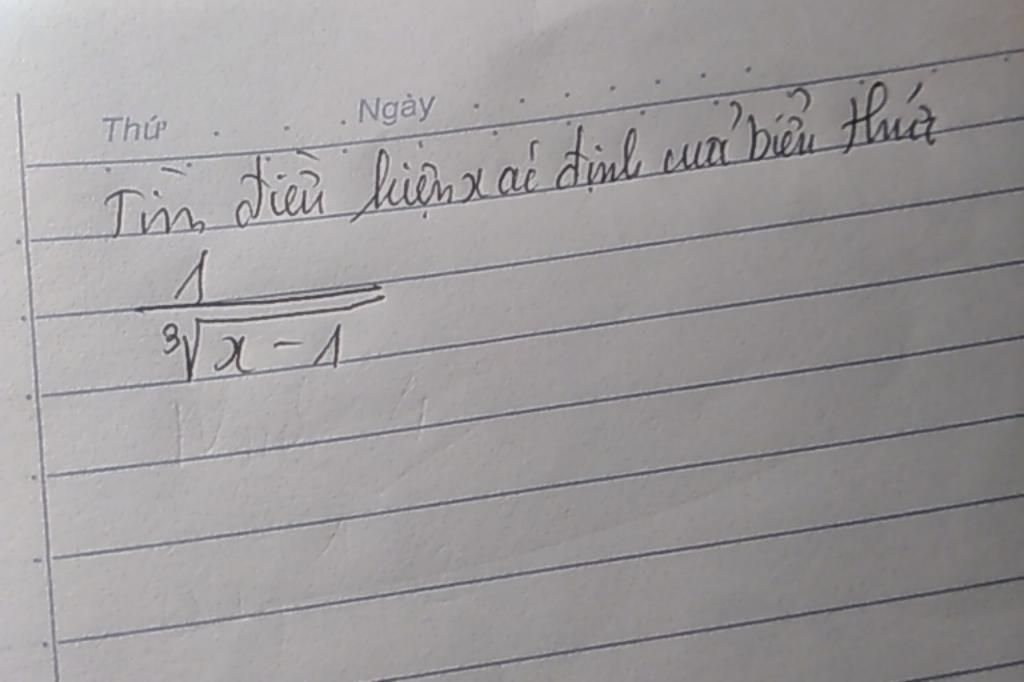 Thứ . . . Ngày . . . . . . .
Tìm điều kiện xác định của biểu thức
1
∛x - 1